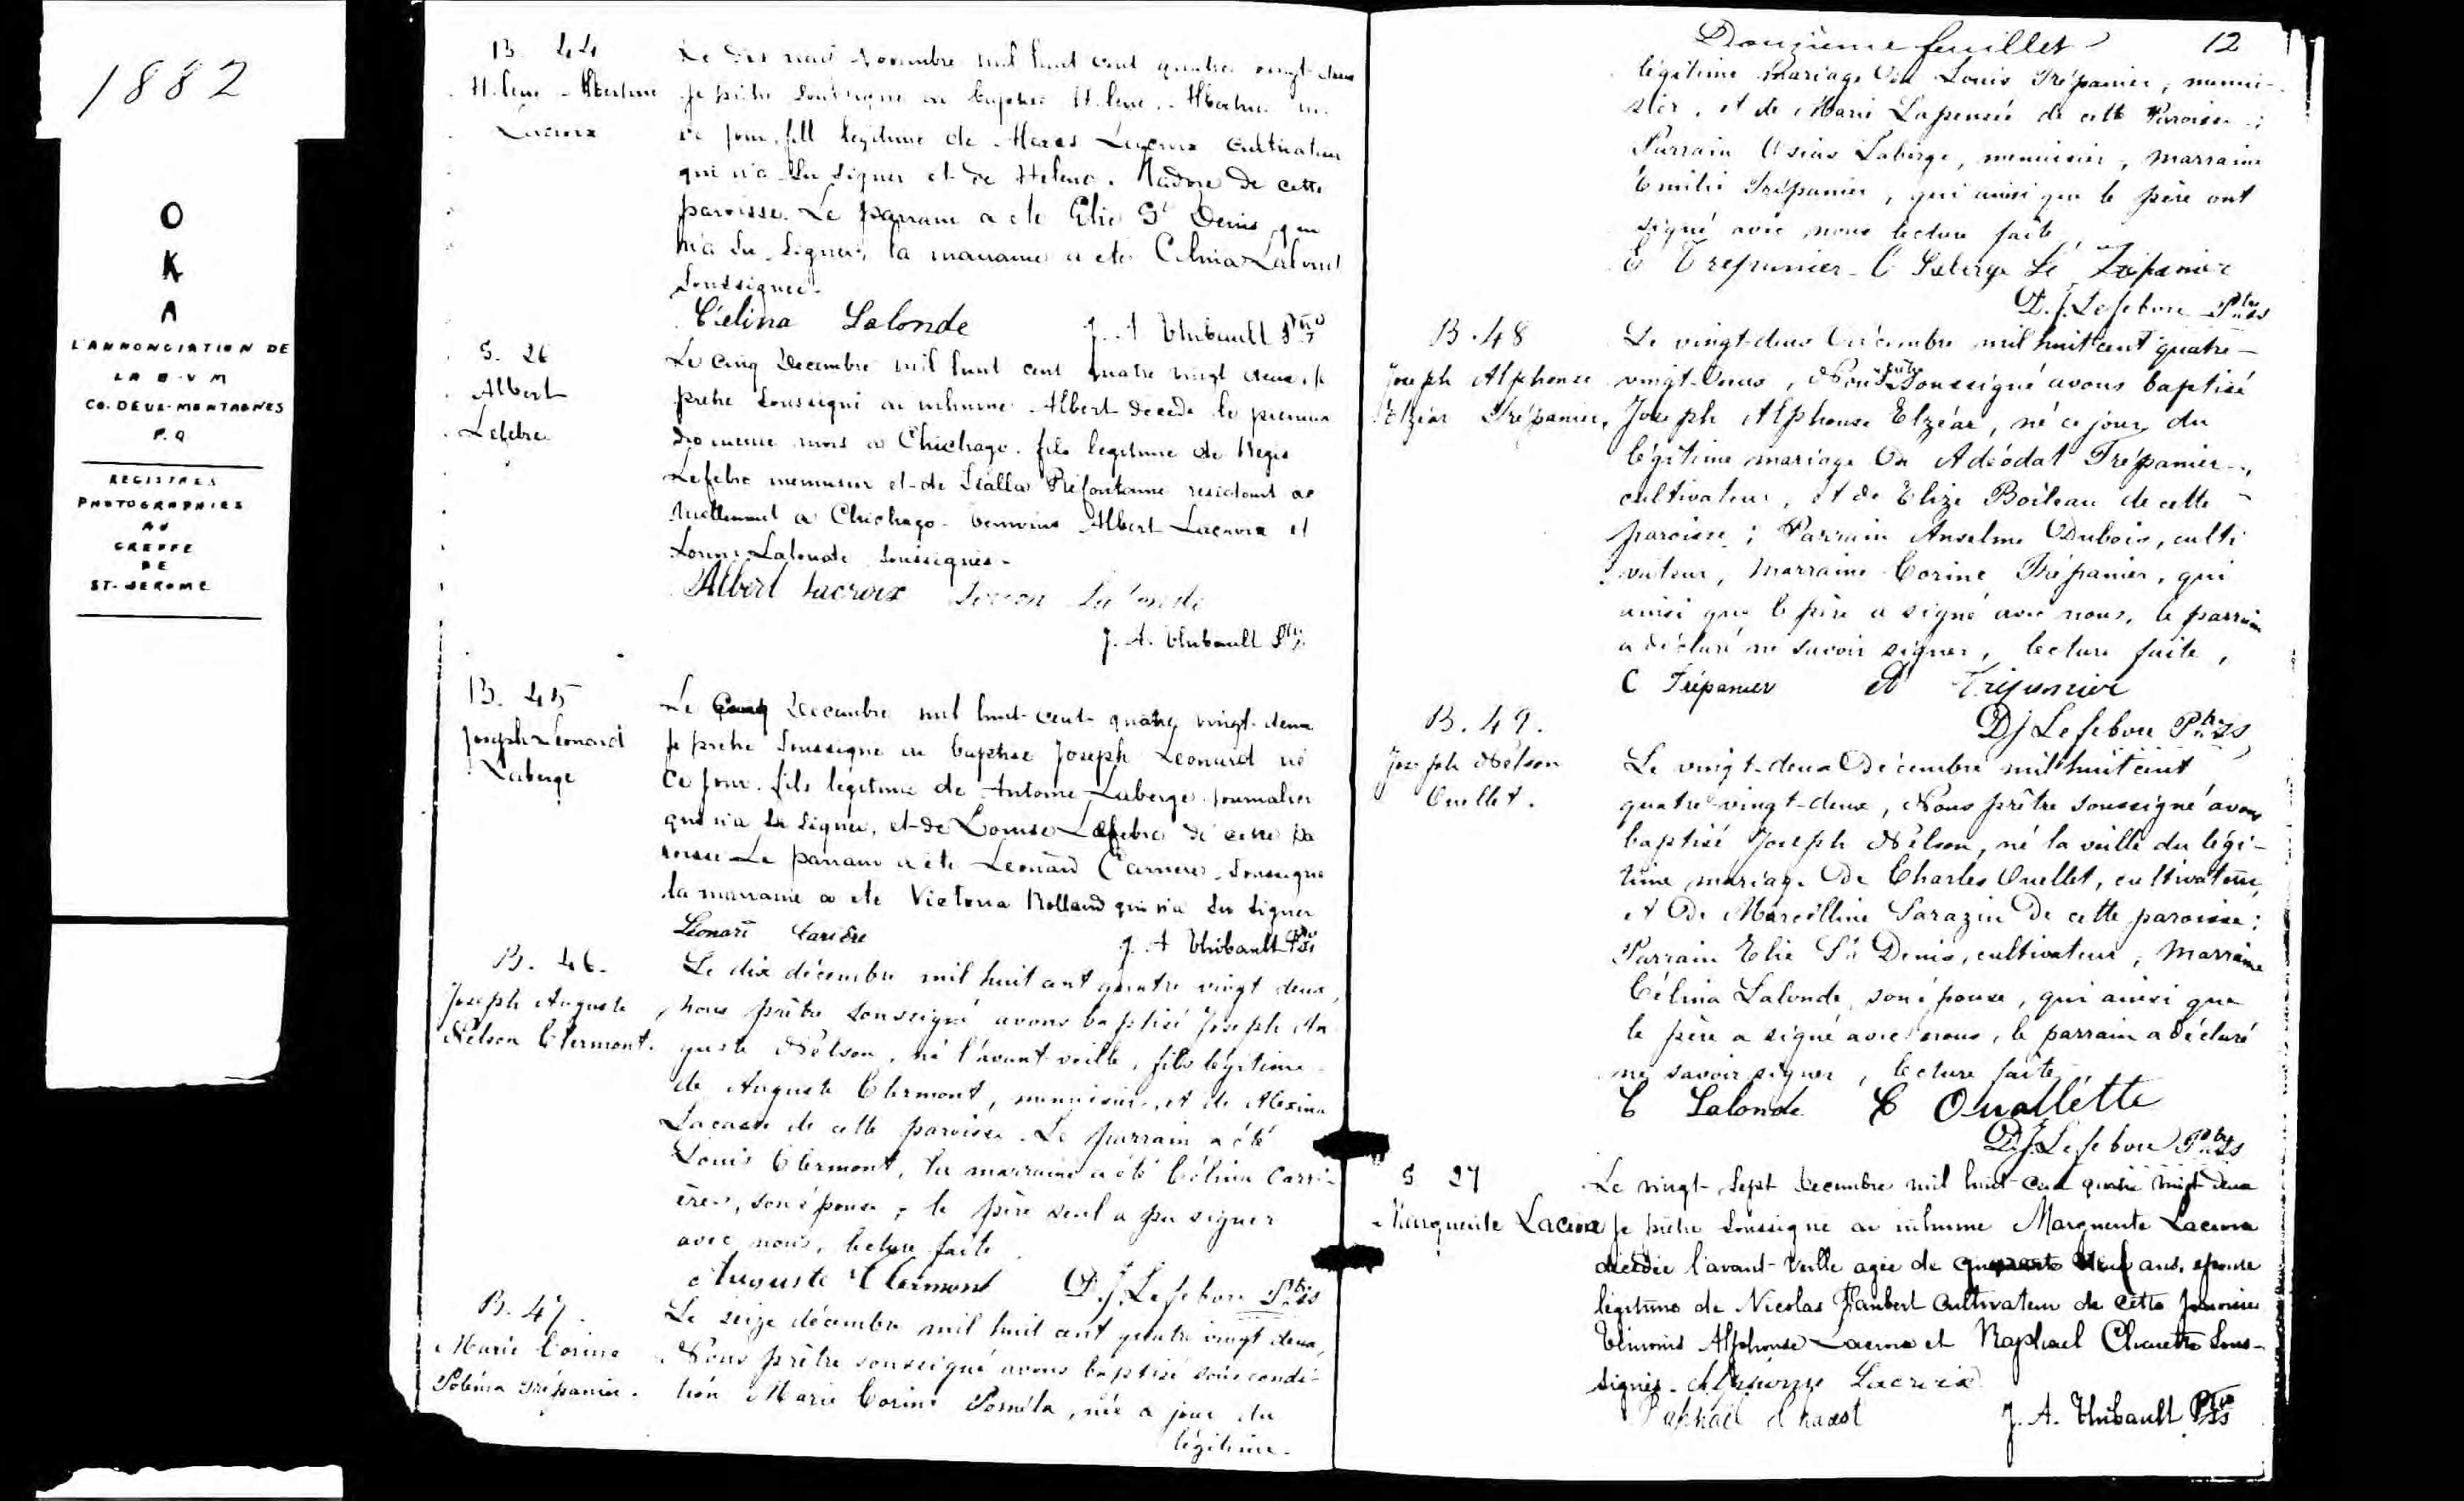 1882
O
K
A
L'ANNONCIATION DE
LA B.V.M
CO. DEUX-MONTAGNES
P.Q
REGISTRES
PHOTOGRAPHIES
AU
GREFFE
DE
ST-JEROME
B. 44
Lacroix
Le dix neuf Novembre mil huit cent quatre vingt deux
Je prêtre soussigné ai baptisé
ce jour, fille legitime de Lacroix cultivateur
qui n'a su signer et de Helene de cette
paroisse. Le parrain a ete Elie St Denis qui
n'a su signer, la marraine a ete Celina Lalond
soussignée.
Célina Lalonde J. A Thibault Ptre
S. 26
Albert
Lefebre
Le cinq Decembre mil huit cent quatre vingt deux, je
pretre soussigné ai inhumé Albert decede le premier
du meme mois a Chichago. fils legitime de Regis
Lefebre menuisier et de Préfontaine residant ac
tuellement a Chichago. temoins Albert Lacroix et
Lalonde soussignés.
Albert Lacroix
J. A. Thibault Ptre
B. 45
Joseph Léonard
Laberge
Le Decembre mil huit cent quatre vingt deux
Je pretre soussigne ai baptisé Joseph Leonard né
ce jour. fils légitime de Antoine Laberge journalier
qui n'a su signer, et de Louise Lefebre de cette pa
roisse Le parrain a ete Leonard Carriere soussigné
la marraine a ete Victoria Rolland qui n'a su signer
J. A Thibault Ptre
B. 46.
Joseph Auguste
Nelson Clermont.
Le dix décembre mil huit cent quatre vingt deux,
nous prêtre soussigné avons baptisé Joseph Au
guste Nelson, né l'avant veille, fils légitime
de Auguste Clermont, menuisier, et de Alexina
Lacasse de cette paroisse. Le parrain a été
Louis Clermont, la marraine a été Célina Carri-
ères, son épouse; le père seul a pu signer
avec nous, lecture faite
Auguste Clermont D. J. Lefebvre Ptre
B. 47.
Marie Corine
Trépanier.
Le seize décembre mil huit cent quatre vingt deux,
Nous prêtre soussigné avons baptisé sous condi-
tion Marie Corine née ce jour du
légitime.
Douzième feuillet 12
légitime mariage de Louis Trépanier, menui-
sier, et de Marie Lapensée de cette Paroisse;
Parrain Osias Laberge, menuisier, marraine
Emilie Trépanier, qui ainsi que le père ont
signé avec nous lecture faite
E Trepanier
D. J. Lefebvre Ptre
B. 48
Joseph Alphonse
Elzéar Trépanier.
Le vingt-deux Décembre mil huit cent quatre-
vingt-deux, Nous prêtre soussigné avons baptisé
Joseph Alphonse Elzéar, né ce jour du
légitime mariage de Adéodat Trépanier,
cultivateur, et de Elize Boileau de cette
paroisse; Parrain Anselme Dubois, culti
vateur, marraine Corine Trépanier, qui
ainsi que le père a signé avec nous, le parrain
a déclaré ne savoir signer, lecture faite,
C Trépanier
D J Lefebvre Ptre
B. 49.
Joseph Nelson
Ouellet.
Le vingt-deux Décembre mil huit cent
quatre-vingt-deux, Nous prêtre soussigné avons
baptisé Joseph Nelson, né la veille du légi-
time mariage de Charles Ouellet, cultivateur,
et de Marcelline Sarazin de cette paroisse;
Parrain Elie St Denis, cultivateur, marraine
Célina Lalonde, son épouse, qui ainsi que
le père a signé avec nous, le parrain a déclaré
ne savoir signer, lecture faite
C Lalonde C Ouallétte
D. J. Lefebvre Ptre
S 27
Marguerite Lacroix
Le vingt-sept Decembre mil huit cent quatre vingt deux
Je pretre soussigne ai inhume Marguerite Lacroix
decedée l'avant-veille agée de ans, epouse
legitime de Nicolas Cultivateur de cette paroisse
temoins Alphonse Lacroix et Raphael sous-
signés. Alphonse Lacroix
J. A. Thibault Ptre